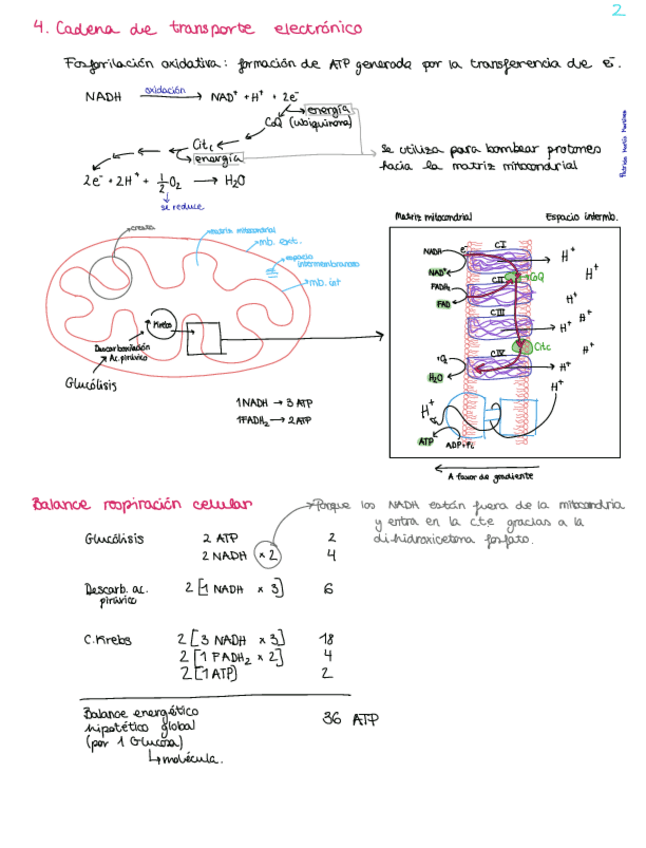 2
4. Cadena de transporte electrónico
Fosforilación oxidativa: formación de ATP generada por la transferencia de e⁻.
NADH oxidación → NAD⁺ + H⁺ + 2e⁻
energía
CoQ (ubiquinona)
Cit c
energía
2e⁻ + 2H⁺ + 1/2 O₂ → H₂O
se reduce
se utiliza para bombear protones
hacia la matriz mitocondrial
cresta
matriz mitocondrial
mb. ext.
espacio
intermembranoso
mb. int
Krebs
Descarboxilación
Ac. pirúvico
Glucólisis
1NADH → 3 ATP
1FADH₂ → 2ATP
Matriz mitocondrial
Espacio intermb.
NADH
e⁻
CI
H⁺
H⁺
NAD⁺
CII
CoQ
FADH₂
FAD
H⁺
CIII
H⁺
H⁺
Citc
H⁺
CIV
H⁺
H₂O
H⁺
H⁺
ATP
ADP+Pi
A favor de gradiente
Balance respiración celular
Porque los NADH están fuera de la mitocondria
y entra en la c.t.e gracias a la
dihidroxicetona fosfato.
Glucólisis 2 ATP 2
2 NADH x 2 4
Descarb. ac. 2 [1 NADH x 3] 6
pirúvico
C.Krebs 2 [3 NADH x 3] 18
2 [1 FADH₂ x 2] 4
2 [1 ATP] 2
Balance energético 36 ATP
hipotético global
(por 1 Glucosa)
↳ molécula.